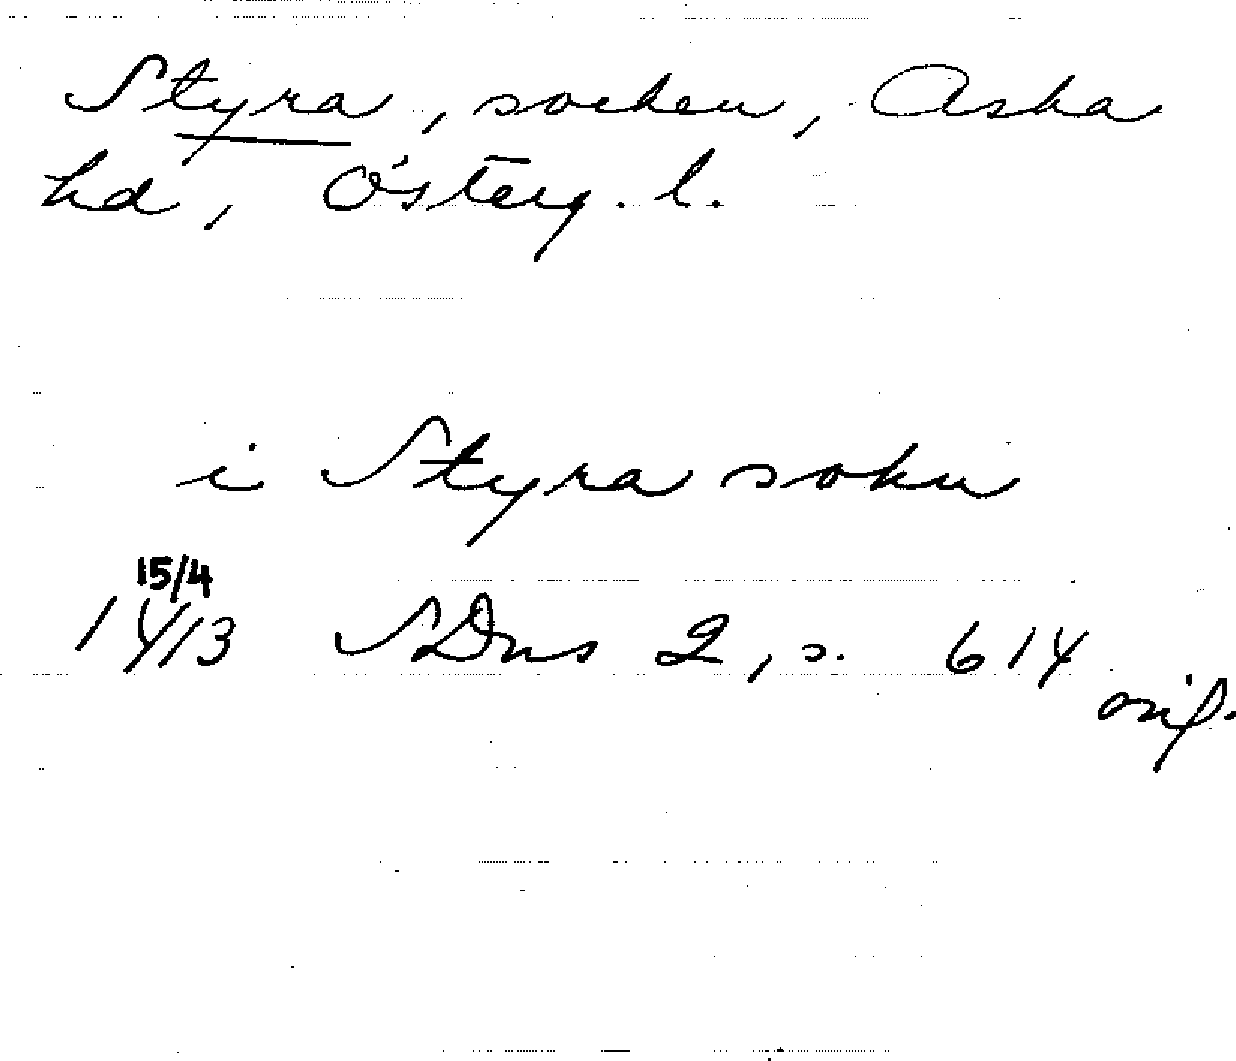 Styra, socken, Aska
hd, Österg. l.
i Styra sokn
15/4
1413 SDns 2, s. 614
orig.